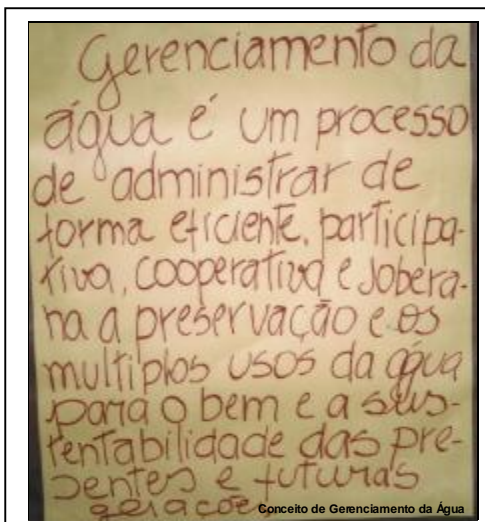 Gerenciamento da
água é um processo
de administrar de
forma eficiente, participa-
tiva, cooperativa e sobera-
na a preservação e os
multiplos usos da água
para o bem e a sus-
tentabilidade das pre-
sentes e futuras
gerações
Conceito de Gerenciamento da Água